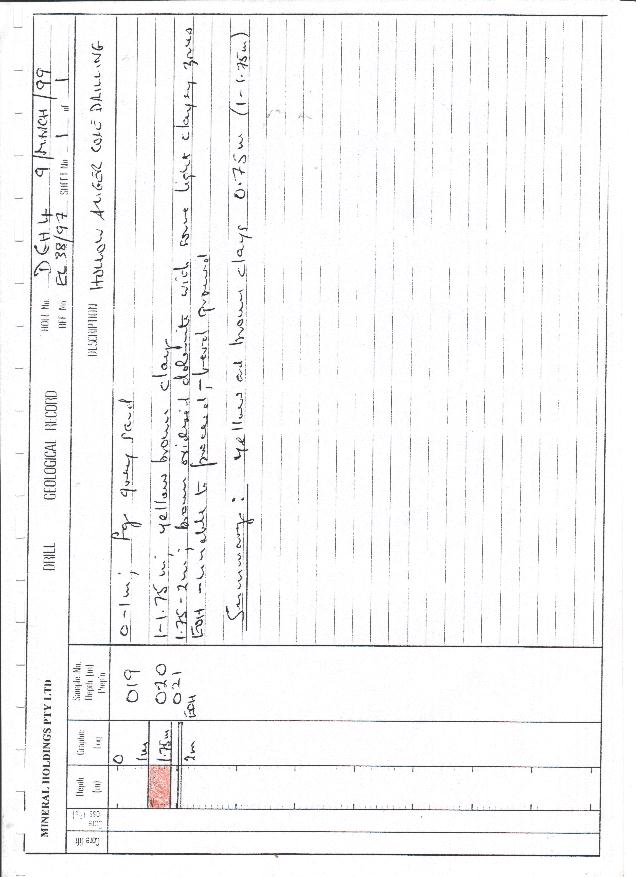 MINERAL HOLDINGS PTY LTD
DRILL GEOLOGICAL RECORD
HOLE No. DCH4 9/MARCH/99
REF No. EL 38/97 SHEET No. 1 of 1
Core lift
Core Loss
Depth (m)
Graphic Log
Sample No.
Depth (m)
DESCRIPTION HOLLOW AUGER CORE DRILLING
0
1m 019 0-1m; fg grey sand
1.75m 020 1-1.75m; yellow brown clay
021 1.75-2m; brown oxidised dolomite with some light clayey zones
2m EOH EOH - unable to proceed, hard ground
Summary: yellow and brown clays 0.75m (1-1.75m)